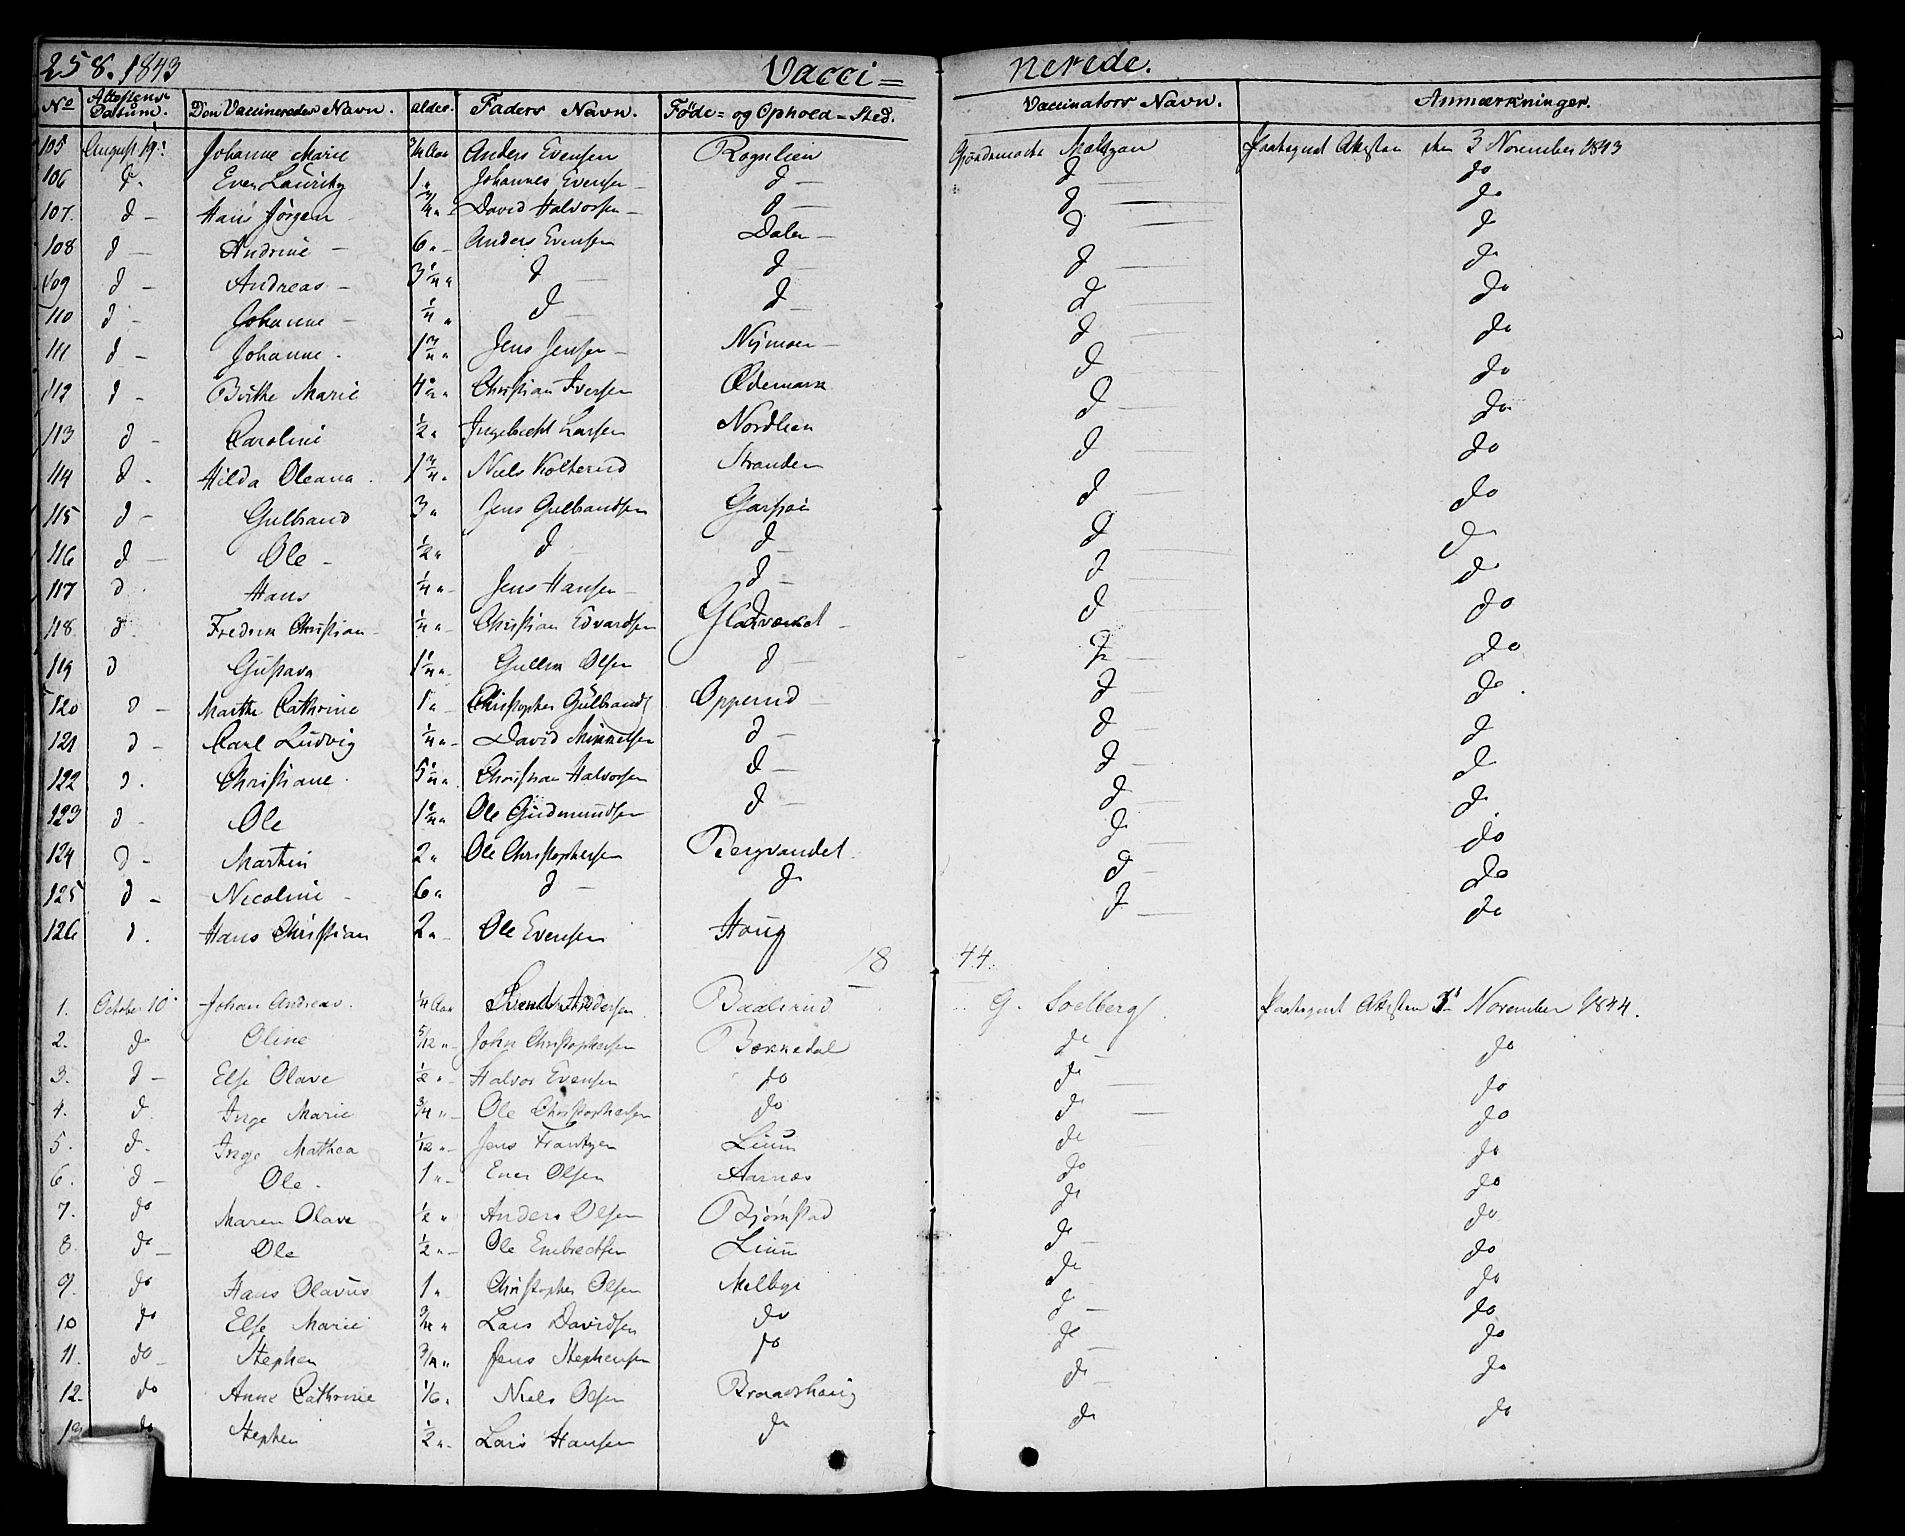 258. 1843 Vacci= nerede.
No Attestens Datum. Den Vaccineredes Navn. alder. Faders Navn. Føde- og Ophold-Sted. Vaccinators Navn. Anmærkninger.
105 August 19. Johanne Marie 3/4 Aar Anders Evensen Rognlien Maltzau Paategnet Attesten den 3 November 1843
106 d. Even Lauritz 1 " Johannes Evensen d d do
107. d Hans Jørgen 3/4 " David Halvorsen d d do
108 d Andrine 6 " Anders Evensen Dalen d d
109 d Andreas 3 1/4 " d d d do
110 d Johanne 1/4 " d d d do
111 d Johanne 1 3/4 " Jens Jensen Nymoen d do
112 d Birthe Marie 4 " Christian Iversen Ødemark d do
113 d Caroline 1/2 " Ingebrecht Larsen Nordlien d do
114 d. Hilda Oleana 1 3/4 " Niels Kolterud Stranden d do
115 d Gulbrand 3 " Jens Gulbrandsen Garsjøe d do
116 d Ole 1/2 " d d d d
117 d. Hans 1/4 " Jens Hansen d d do
118 d. Fredrik Christian 1/4 " Christian Edvardsen Gladværket d do
119 d Gustava 1 1/4 " Gullik Olsen d d do
120 d Marthe Cathrine 1 " Christopher Gulbrands Opperud d do
121 d Carl Ludvig 1/4 " David Mikkelsen d d d
122 d. Christiane 5 1/4 " Christian Halvorsen d d d
123 d Ole 1 1/4 " Ole Gudmundsen d d d
124 d Martin 2 " Ole Christophersen Bergvandet d do
125 d Nicoline 6 " d do d do
126 d. Hans Christian 2 " Ole Evensen Houg d do
18 44.
1. October 10 Johan Andreas 1/4 Aar Svend Andersen Baalsrud G. Soelberg Paategnet Attesten November 1844.
2. do Oline 5/12 " John Christophersen Bekkedal do do
3. d Else Olave 1/2 " Halvor Evensen do do do
4. d. Inge Marie 3/4 " Ole Christophersen do do do
5. d. Inge Mathea 1/12 " Jens Frantzen Liun do do
6. d Ole 1 " Even Olsen Aarnæs do do
7. do Maren Olave 1/2 " Anders Olsen Bjørnstad do do
8. do Ole 1/2 " Ole Embrechtsen Liun do do
9. do Hans Olavus 1 " Christopher Olsen Melbye do do
10 do Else Marie 3/4 " Lars Davidsen do d do
11. do Stephen 3/4 " Jens Stephensen do do do
12. do Anne Cathrine 1/6 " Niels Olsen Braadshaug do do
13 do Stephen 1/2 " Lars Hansen do do do